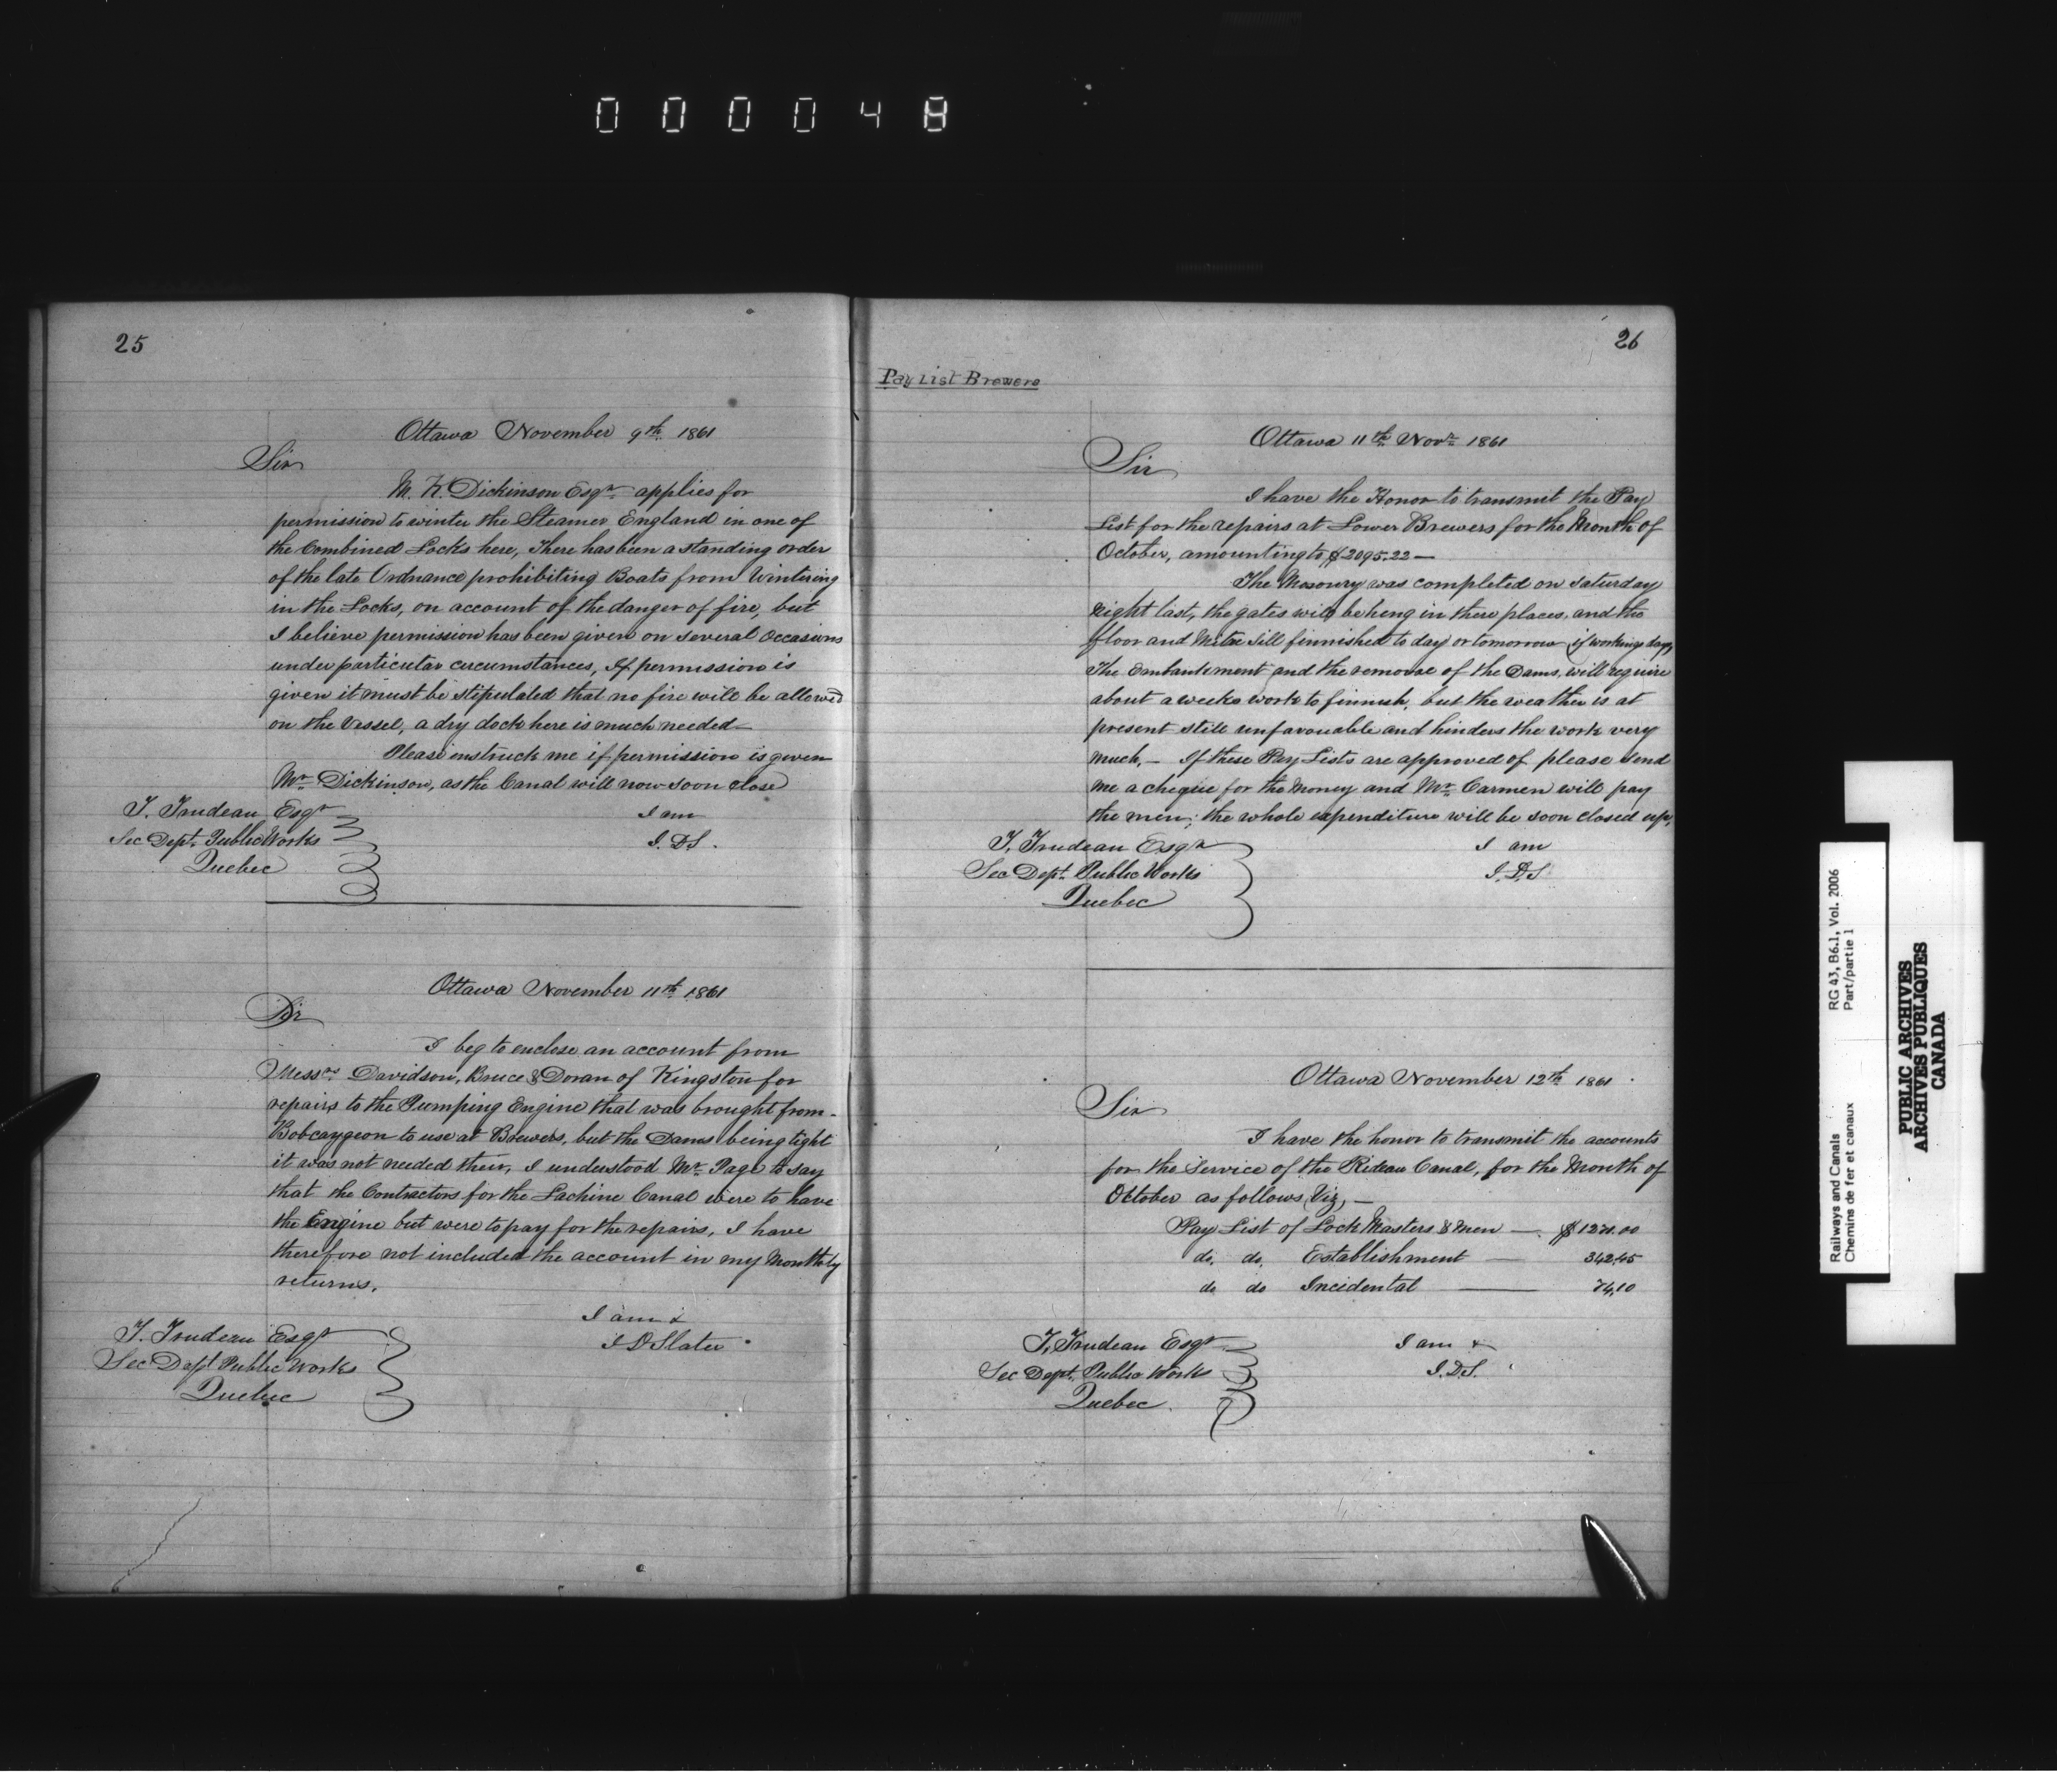 000048
25
Ottawa November 9th 1861
Sir
M. K. Dickinson Esqr applies for
permission to winter the Steamer England in one of
the Combined Locks here, There has been a standing order
of the late Ordnance prohibiting Boats from Wintering
in the Locks, on account of the danger of fire, but
I believe permission has been given on several occasions
under particular circumstances, If permission is
given it must be stipulated that no fire will be allowed
on the Vessel, a dry dock here is much needed—
Please instruct me if permission is given
Mr Dickinson, as the Canal will now soon close
T. Trudeau Esqr
I am
Sec Dept. Public Works
J. D S.
Quebec
Ottawa November 11th 1861
Sir
I beg to enclose an account from
Messrs Davidson, Bruce & Doran of Kingston for
repairs to the Pumping Engine that was brought from
Bobcaygeon to use at Brewers, but the Dams being tight
it was not needed their, I understood Mr Page to say
that the Contractors for the Lachine Canal were to have
the Engine but were to pay for the repairs, I have
therefore not included the account in my Monthly
returns.
I am &
T. Trudeau Esqr
J D Slater
Sec Dept Public Works
Quebec
26
Pay List Brewers
Ottawa 11th Novr 1861
Sir
I have the Honor to transmit the Pay
List for the repairs at Lower Brewers for the Month of
October, amounting to $2095.22—
The Masonry was completed on Saturday
night last, the gates will be hung in there places, and the
floor and Mitre Sill finnished to day or tomorrow (if workings days)
The Embankment and the removal of the Dams, will require
about a weeks work to finnish, but the weather is at
present still unfavourable and hinders the work very
much.— If these Pay Lists are approved of please send
me a cheque for the Money and Mr Carmen will pay
the men; the whole expenditure will be soon closed up,
T. Trudeau Esqr
I am
Sec Dept. Public Works
J. D. S
Quebec
Ottawa November 12th 1861
Sir
I have the honor to transmit the accounts
for the Service of the Rideau Canal, for the Month of
October as follows, Viz,—
Pay List of Lock Masters & Men —
do. do. Establishment — 342.45
do do Incidental — 74.10
T. Trudeau Esqr
I am &
Sec Dept. Public Works
J. D. S.
Quebec
Railways and Canals
Chemins de fer et canaux
RG 43, B6.1, Vol. 2006
Part/partie 1
PUBLIC ARCHIVES
ARCHIVES PUBLIQUES
CANADA